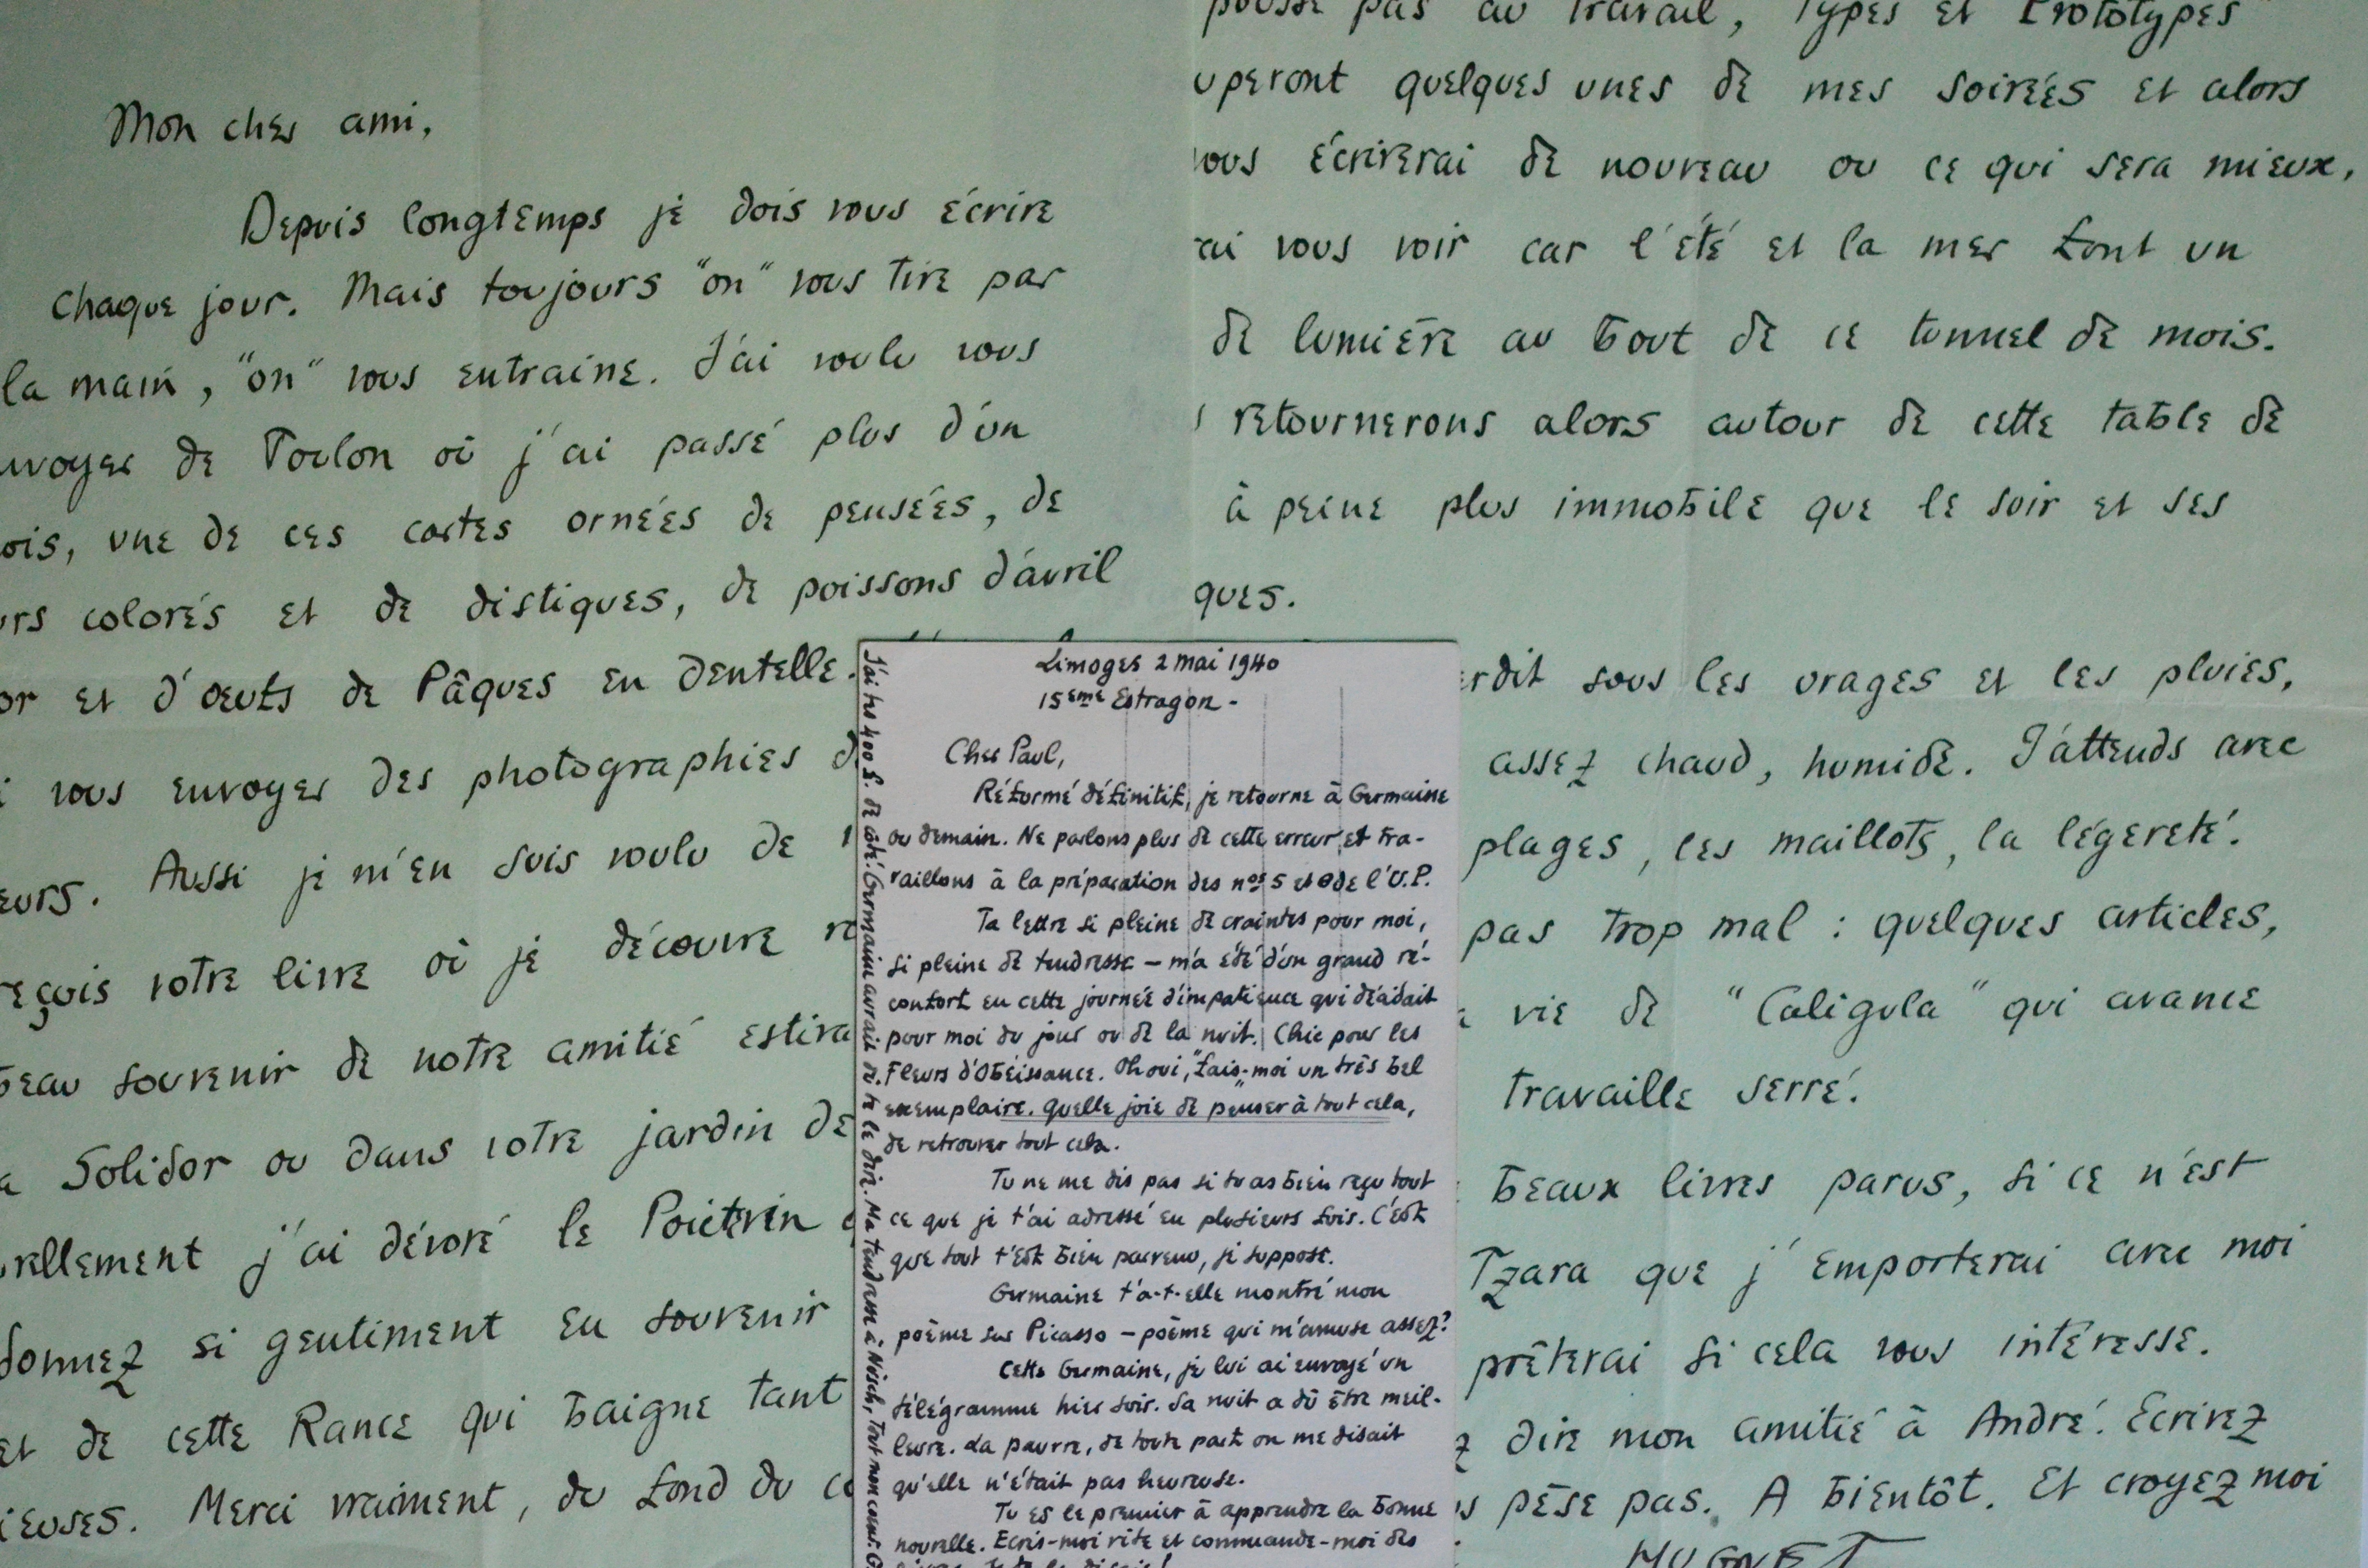 Mon cher ami,
Depuis longtemps je dois vous écrire
chaque jour. Mais toujours "on" vous tire par
la main, "on" vous entraine. J'ai voulu vous
de Toulon où j'ai passé plus d'un
une de ces cartes ornées de pensées, de
colorés et de distiques, de poissons d'avril
et d'oeufs de Pâques en dentelle.
vous envoyer des photographies
Aussi je m'en suis voulu de
votre livre où je découvre
souvenir de notre amitié
Solidor ou dans votre jardin de
j'ai dévoré le
si gentiment en souvenir
et de cette Rance qui baigne tant
Merci vraiment, du fond du
pas au travail, "Types et Prototypes"
quelques unes de mes soirées et alors
écrirerai de nouveau ou ce qui sera mieux,
vous voir car l'été et la mer font un
de lumière au bout de ce tunnel de mois.
retournerons alors autour de cette table de
à peine plus immobile que le soir et ses
ques.
sous les orages et les pluies,
assez chaud, humide. J'attends avec
plages, les maillots, la légereté.
pas trop mal : quelques articles,
vie de "Caligula" qui avance
travaille serré.
beaux livres parus, si ce n'est
Tzara que j'emporterai avec moi
prêterai si cela vous intéresse.
dire mon amitié à André. Ecrivez
pèse pas. A bientôt. Et croyez moi
HUGNET
Limoges 2 mai 1940
15ème Estragon -
Cher Paul,
Réformé définitif, je retourne à Germaine
ou demain. Ne parlons plus de cette erreur et tra-
vaillons à la préparation des nos 5 et de l'U.P.
Ta lettre si pleine de craintes pour moi,
si pleine de tendresse - m'a été d'un grand ré-
confort en cette journée d'impatience qui décidait
pour moi du jour ou de la nuit. Chic pour les
Fleurs d'Obéissance. Oh oui, "fais-moi un très bel
exemplaire". Quelle joie de penser à tout cela,
de retrouver tout cela.
Tu ne me dis pas si tu as bien reçu tout
ce que je t'ai adressé en plusieurs fois. C'est
que tout t'est bien parvenu, je suppose.
Germaine t'a-t-elle montré mon
poème sur Picasso - poème qui m'amuse assez?
Cette Germaine, je lui ai envoyé un
télégramme hier soir. Sa nuit a dû être meil-
leure. La pauvre, de toute part on me disait
qu'elle n'était pas heureuse.
Tu es le premier à apprendre la bonne
nouvelle. Ecris-moi vite et commande-moi des
J'ai tes 400 f. de côté. Germaine aurait dû te le dire. Ma tendresse à Nusch, Tout mon coeur. G.